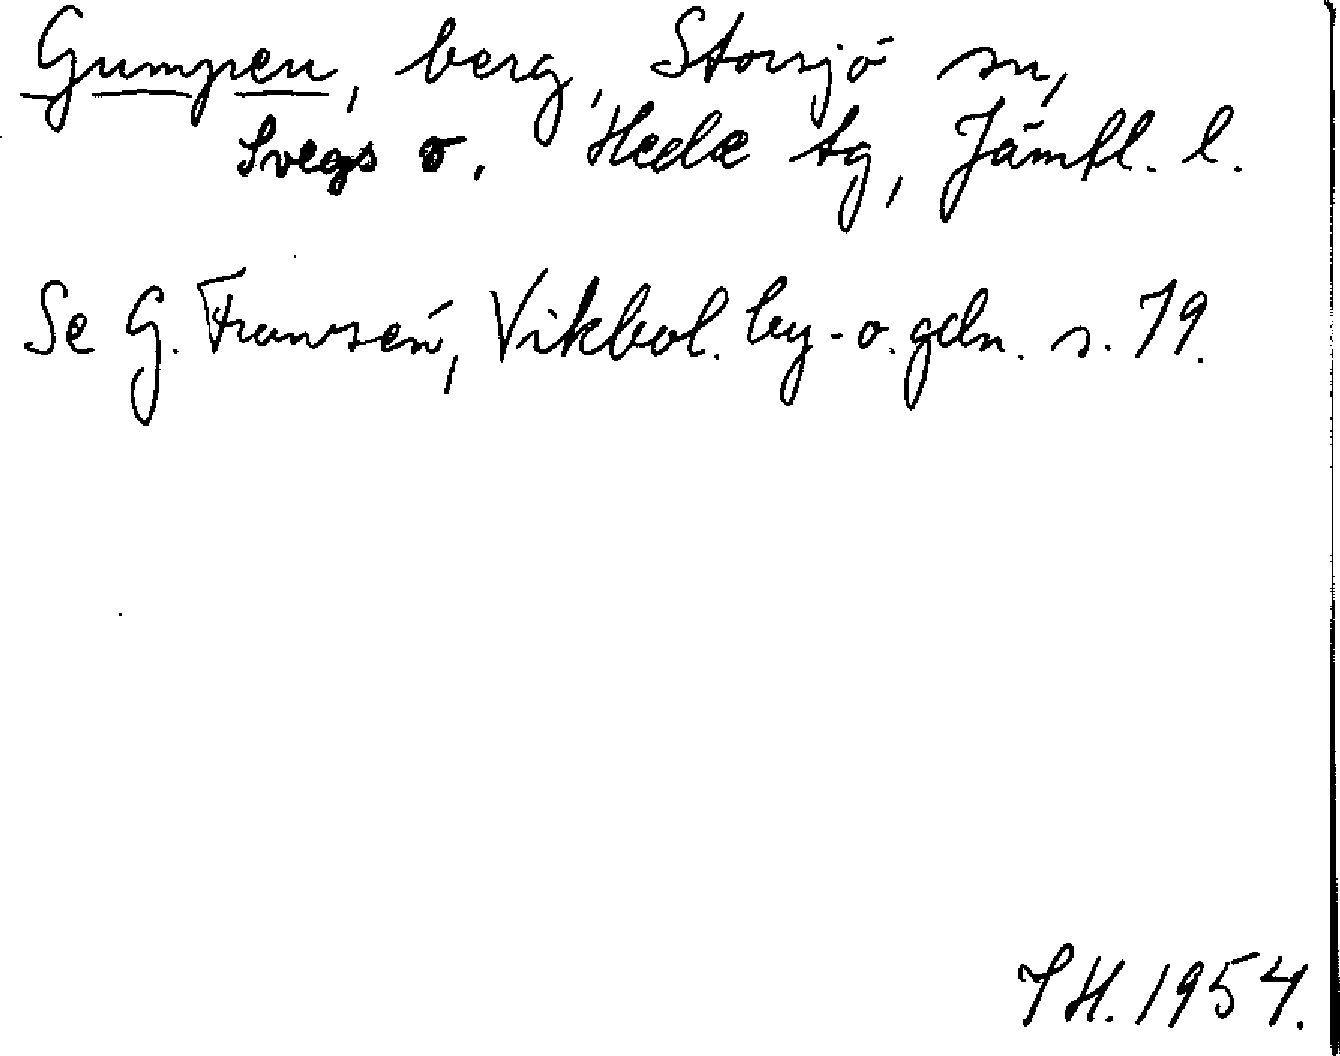 Gumpen, berg, Storsjö sn,
Svegs o. Hede tg, Jämtl. l.
Se G. Franzén, Vikbol. by- o. gdn. s. 79.
IH. 1954.